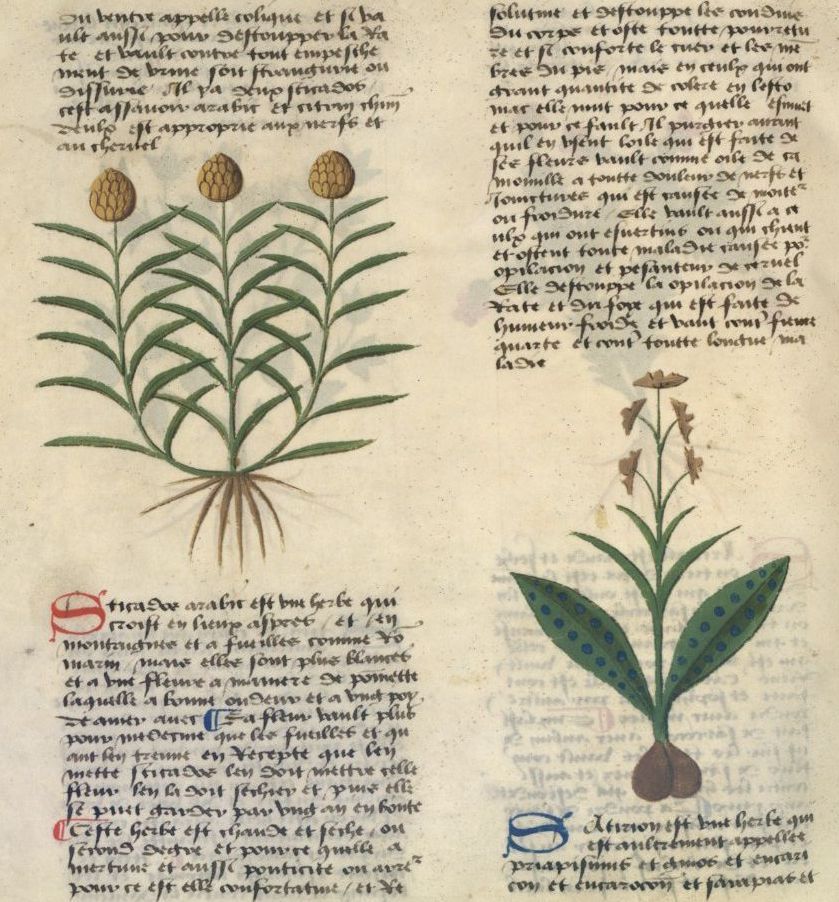 du ventre appelle colique et si va
ult aussi pour destoupper la Ra
te et vault contre tout empesche
ment de urine soit stranguirie ou
dissurie Il ya deux sticados
cest assavoir arabic et citrin
deulx est approprie aux nerfs et
au chervel
Sticados arabic est une herbe qui
croist en lieux aspres et en
montaignes et a fueilles comme Ro
marin mais elles sont plus blances
et a une fleure a maniere de pomette
laquelle a bonne oudeur et a ung poy
de amer avec La fleur vault plus
pour medecine que les fueilles et qu
ant len treuve en Recepte que len
mette sticados len doit mettre celle
fleur len la doit sechier et puis elle
se puet garder par ung an en bonte
Ceste herbe est chaude et seche ou
second degre et pour ce quelle a
mertune et aussi ponticite ou
pour ce est elle confortative et Re
solutive et destouppe les conduis
du corps et oste toutte pourretu
re et si conforte le cuer et les me
bres du pis mais en ceulx qui ont
grant quantite de colere en lesto
mac elle nuit pour ce quelle esmuet
et pour ce fault Il purgier avant
quil en usent loile qui est faite de
ses fleurs vault comme oile de ca
momille a toutte douleur de nerfs et
Jointures qui est causee de
ou froidure Elle vault aussi a ce
ulx qui ont esvertins ou qui chieent
et ostent toute maladie causee po
opilacion et pesanteur de cervel
Elle destouppe la opilacion de la
Rate et du foye qui est faite de
humeur froide et vault cont fievre
quarte et cont toutte longue ma
ladie
Satirion est une herbe qui
est aultrement appellee
priapismus et
et et